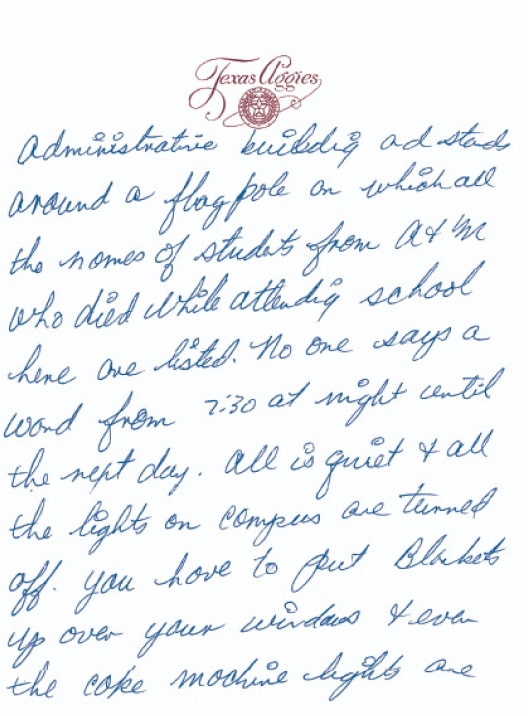 Texas Aggies
Administrative buildig ad stads
around a flag pole on which all
the names of students from A&M
who died while attendig school
here are listed. No one says a
word from 7:30 at night until
the next day. All is quiet & all
the lights on campus are turned
off. You have to put Blankets
up over your windows & even
the coke machine lights are